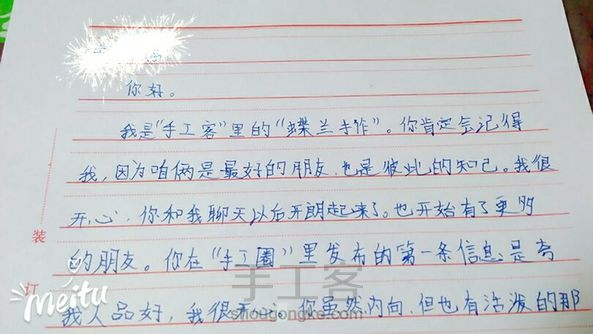 你好。
我是“手工客”里的“蝶兰手作”。你肯定会记得
我，因为咱俩是最好的朋友，也是彼此的知己。我很
开心，你和我聊天以后开朗起来了。也开始有了更多
的朋友。你在“手工圈”里发布的第一条信息是夸
我人品好，我很开心。你虽然内向，但也有活泼的那
装
订
手工客
shougongke.com
meitu